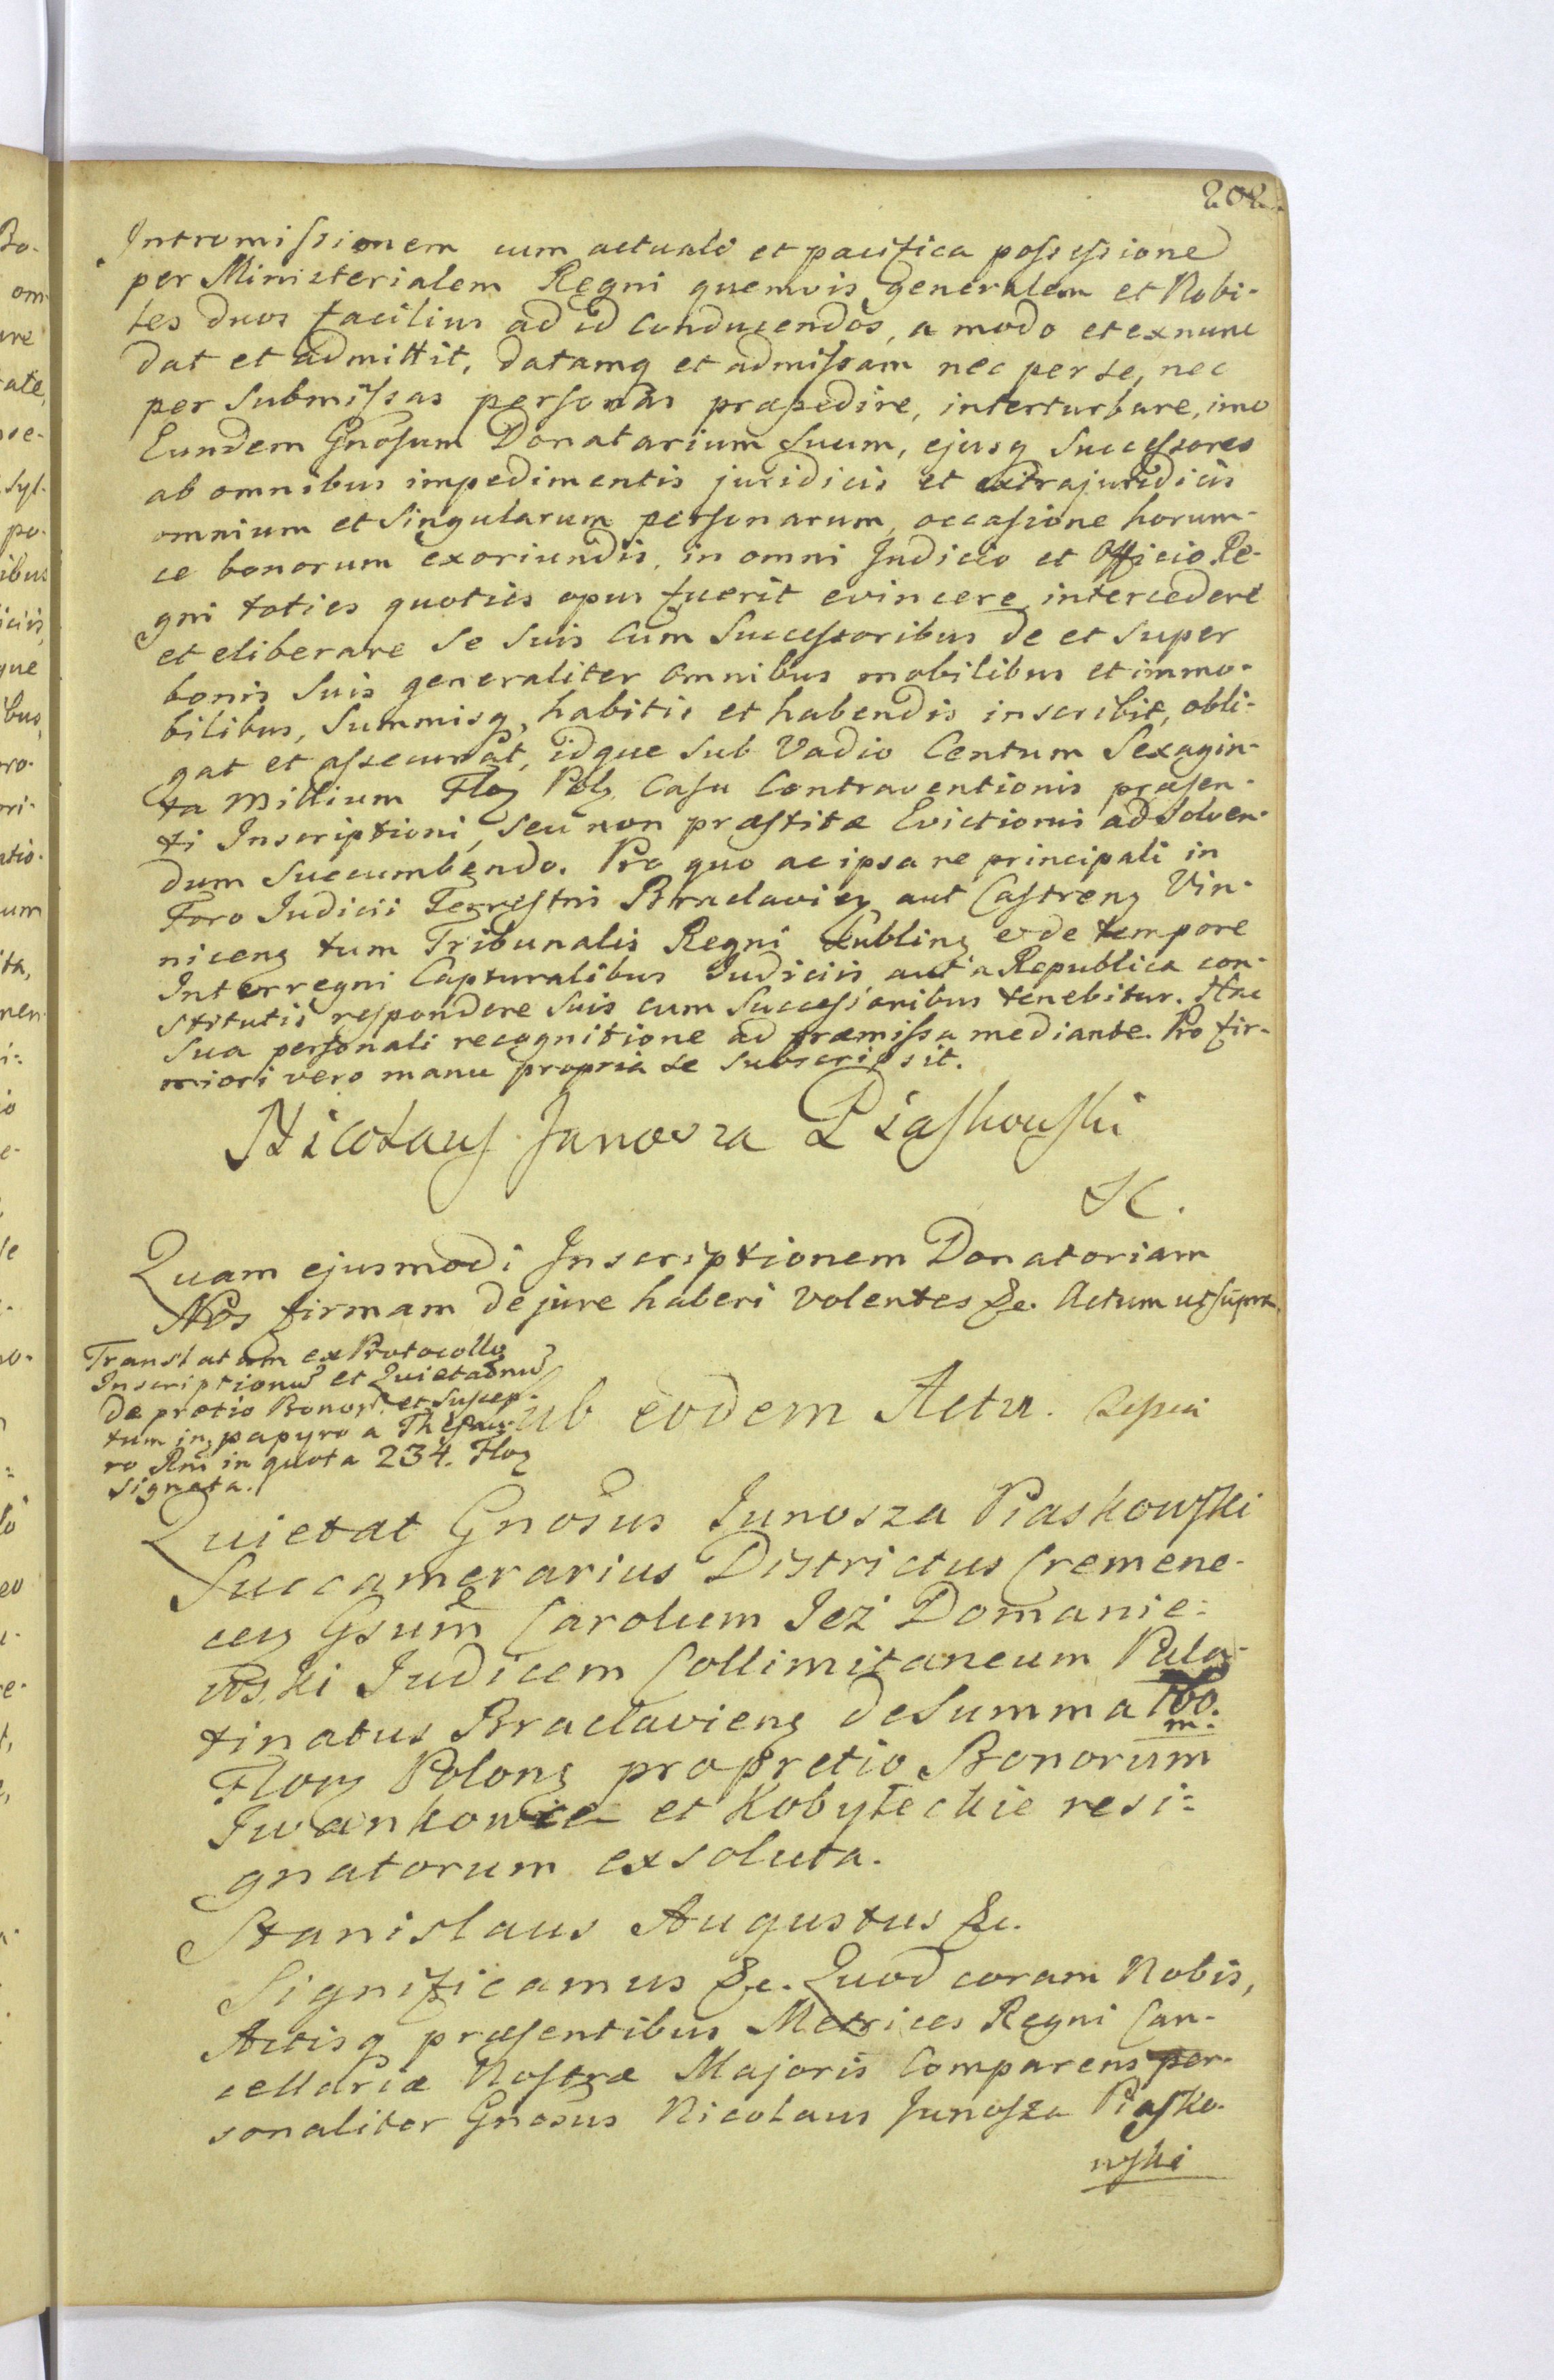 202.
Intromissionem cum actuali et pacifica possessione
per Ministerialem Regni quemvis generalem et Nobi-
les duos facilius ad id conducendos, a modo et ex nunc
dat et admittit, datamq et admissam nec per se, nec
per submissas personas præpedire, interturbare, imo
Eundem Gnosum Donatarium suum, ejusq Successores
ab omnibus impedimentis juridicis et extrajuridicis
omnium et singularum personarum, occasione horum-
ce bonorum exoriundis, in omni Judicio et Officio Re-
gni toties quoties opus fuerit evincere intercedere
et eliberare se suis cum Successoribus de et super
bonis suis generaliter omnibus mobilibus et immo-
bilibus, Summisq, habitis et habendis inscribit, obli-
gat et assecurat, idque sub Vadio Centum Sexagin-
ta Millium Flor Pol, casu Contraventionis præsen-
ti Inscriptioni, seu non præstitæ Evictionis ad solven-
dum succumbendo. Pro quo ac ipsa re principali in
Foro Judicii Terrestris Braclavien aut Castren Vin-
nicen tum Tribunalis Regni Lublinen eode tempore
Interregni Capturalibus Judiciis aut a Republica con-
stitutis respondere suis cum Successoribus tenebitur. Hac
sua personali recognitione ad præmissa mediante. Pro fir-
miori vero manu propria se subscripsit.
Nicolaus Junosza Piaskowski
Quam ejusmodi Inscriptionem Donatoriam
Nos firmam de jure haberi volentes &c. Actum ut supra.
Translatum ex Protocollo
Inscriptionu et Quietaonu
de pretio Bonor et suscep-
tum in papyro a Thesau-
ro Rni in quota 234. Flor
signata.
Sub eodem Actu.
Quietat Gnosus Junosza Piaskowski
Succamerarius Districtus Cremene-
cen Gsum Carolum Jeż Domanie-
wski Judicem Collimitaneum Pala-
tinatus Braclavien de Summa 160.
m.
Flor Polon pro pretio Bonorum
Iwankowce et Kobyleckie resi-
gnatorum exsoluta.
Stanislaus Augustus &c.
Significamus &c. Quod coram Nobis,
Actisq præsentibus Metrices Regni Can-
cellariæ Nostræ Majoris Comparens per-
sonaliter Gnosus Nicolaus Junosza Piasko-
wski